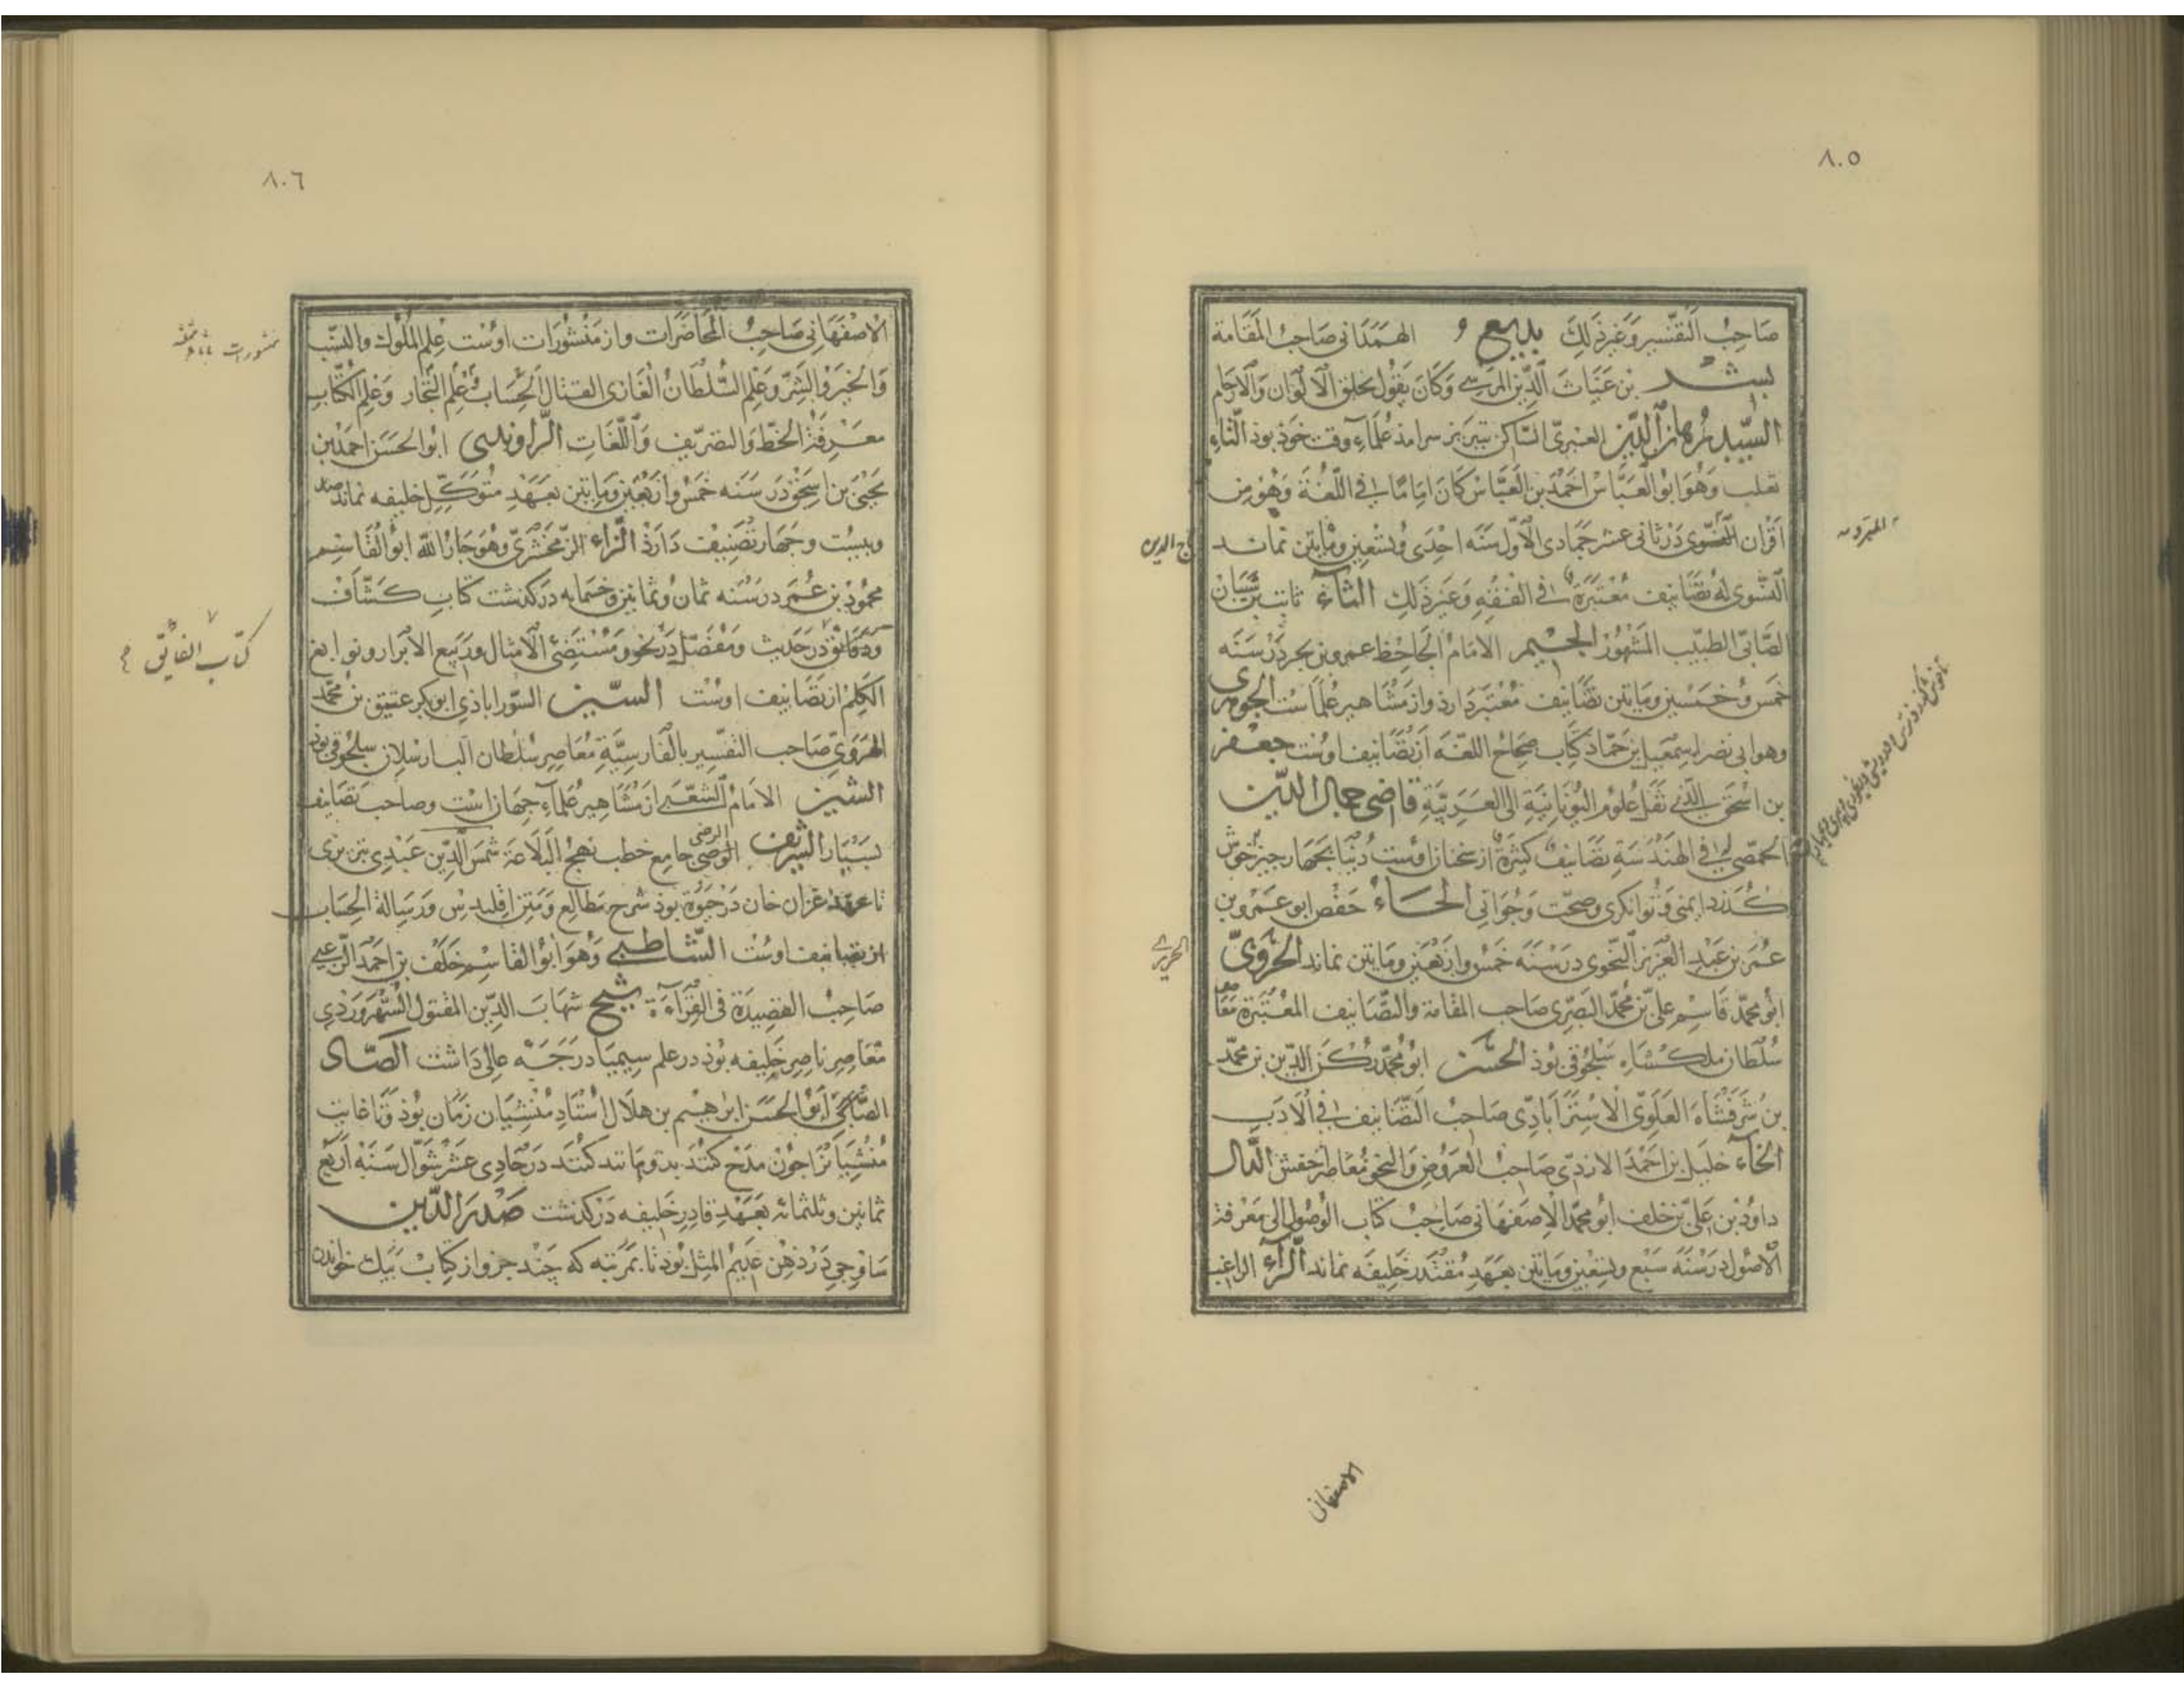 ٨٠٥
صاحب التفسير وغير ذلك بديع و الهمداني صاحب المقامة
بشر بن غياث الدين المريسي وكان يقول بخلق الالوان والاجام
السيد برهان الدين العبري الساكن تبريز سرامد علماء وقت خوذ بوذ الثاء
ثعلب وهو ابو العباس احمد بن العباس كان اماما في اللغة وهو من
اقران النحوى در ثانى عشر جمادى الاول سنه احدى وتسعين ومايتين نماند
النشوى له تصانيف معتبرة في الفقه وغير ذلك الثاء ثابت بن سيان
الصابى الطبيب المشهور الجيم الامام الجاحظ عمرو بن بحر در سنه
خمس وخمسين ومايتين تصانيف معتبر دارذ واز مشاهير علماست الجوهرى
وهو ابى نصر اسمعيل بن حماد كتاب صحاح اللغه از تصانيف اوست جعفر
بن اسحق الذى نقل علوم اليونانية الى العربية قاضى جمال الدين
الحمصى في الهندسة تصانيف كثيرة از سخنان اوست دنيا بجهار جيز خوش
كذرد ايمنى وتوانكرى وصحت وجوانى الحاء حفص ابو عمرو بن
عمر بن عبد العزيز النحوى در سنه خمس واربعين ومايتين نماند الحروى
ابو محمد قاسم على بن محمد البصرى صاحب المقامة والتصانيف المعتبرة معا
سلطان ملكشاه سلجوقى بوذ الحسن ابو محمد ركن الدين بن محمد
بن شرفشاه العلوى الاسترابادى صاحب التصانيف في الادب
الخاء خليل بن احمد الازدى صاحب العروض والنحو معاصر خفش الدال
داود بن على بن خلف ابو محمد الاصفهانى صاحب كتاب الوصول الى معرفة
الاصول در سنه سبع وتسعين ومايتين بعهد مقتدر خليفه نماند الراء الراغب
المبرد
تاج الدين
الحريرى
الاصفهانى
٨٠٦
الاصفهانى صاحب المحاضرات واز منشورات اوست علم الملوك والنسب
والخبر والشر وعلم السلطان الغازى القتال الحساب علم التجار وعلم الكتاب
معرفة الخط والتصريف واللغات الراوندى ابو الحسن احمد بن
يحيى بن اسحق در سنه خمس واربعين ومايتين بعهد متوكل خليفه نماند صد
وبيست وجهار تصنيف دارذ الزاء الزمخشرى وهو جار الله ابو القاسم
محمود بن عمر در سنه ثمان وثمانين وخسمايه در كذشت كتاب كشاف
ودقائق در حديث ومفصل در نحو ومستقصى الامثال وربيع الابرار ونوابغ
الكلم از تصانيف اوست السين السوراباذى ابو بكر عتيق بن محمد
الهروى صاحب التفسير بالفارسية معاصر سلطان البارسلان سلجوقى بوذ
الشين الامام الشعبى از مشاهير علماء جهان است وصاحب تصانيف
بسيار الشريف الرضى جامع خطب نهج البلاغة شمس الدين عبدى تبريزى
تا عهد غزان خان در حيوة بوذ شرح مطالع ومتن اقليدس ورسالة الحساب
از تصانيف اوست الشاطبى وهو ابو القاسم خلف بن احمد الرعينى
صاحب القصيدة فى القراءة شيخ شهاب الدين المقتول السهروردى
معاصر ناصر خليفه بوذ در علم سيميا درجه عالى داشت الصاد
الصابى ابو الحسن ابراهيم بن هلال استاد منشيان زمان بوذ وتا غايت
منشيانرا جون مدح كنند بدو مانند كنند در حادى عشر شوال سنه اربع
ثمانين وثلثمائه بعهد قادر خليفه در كذشت صدر الدين
ساوجى در ذهن عديم المثل بوذ تا بمرتبه كه چند جزو از كتاب بيك خواندن
كتاب الفائق